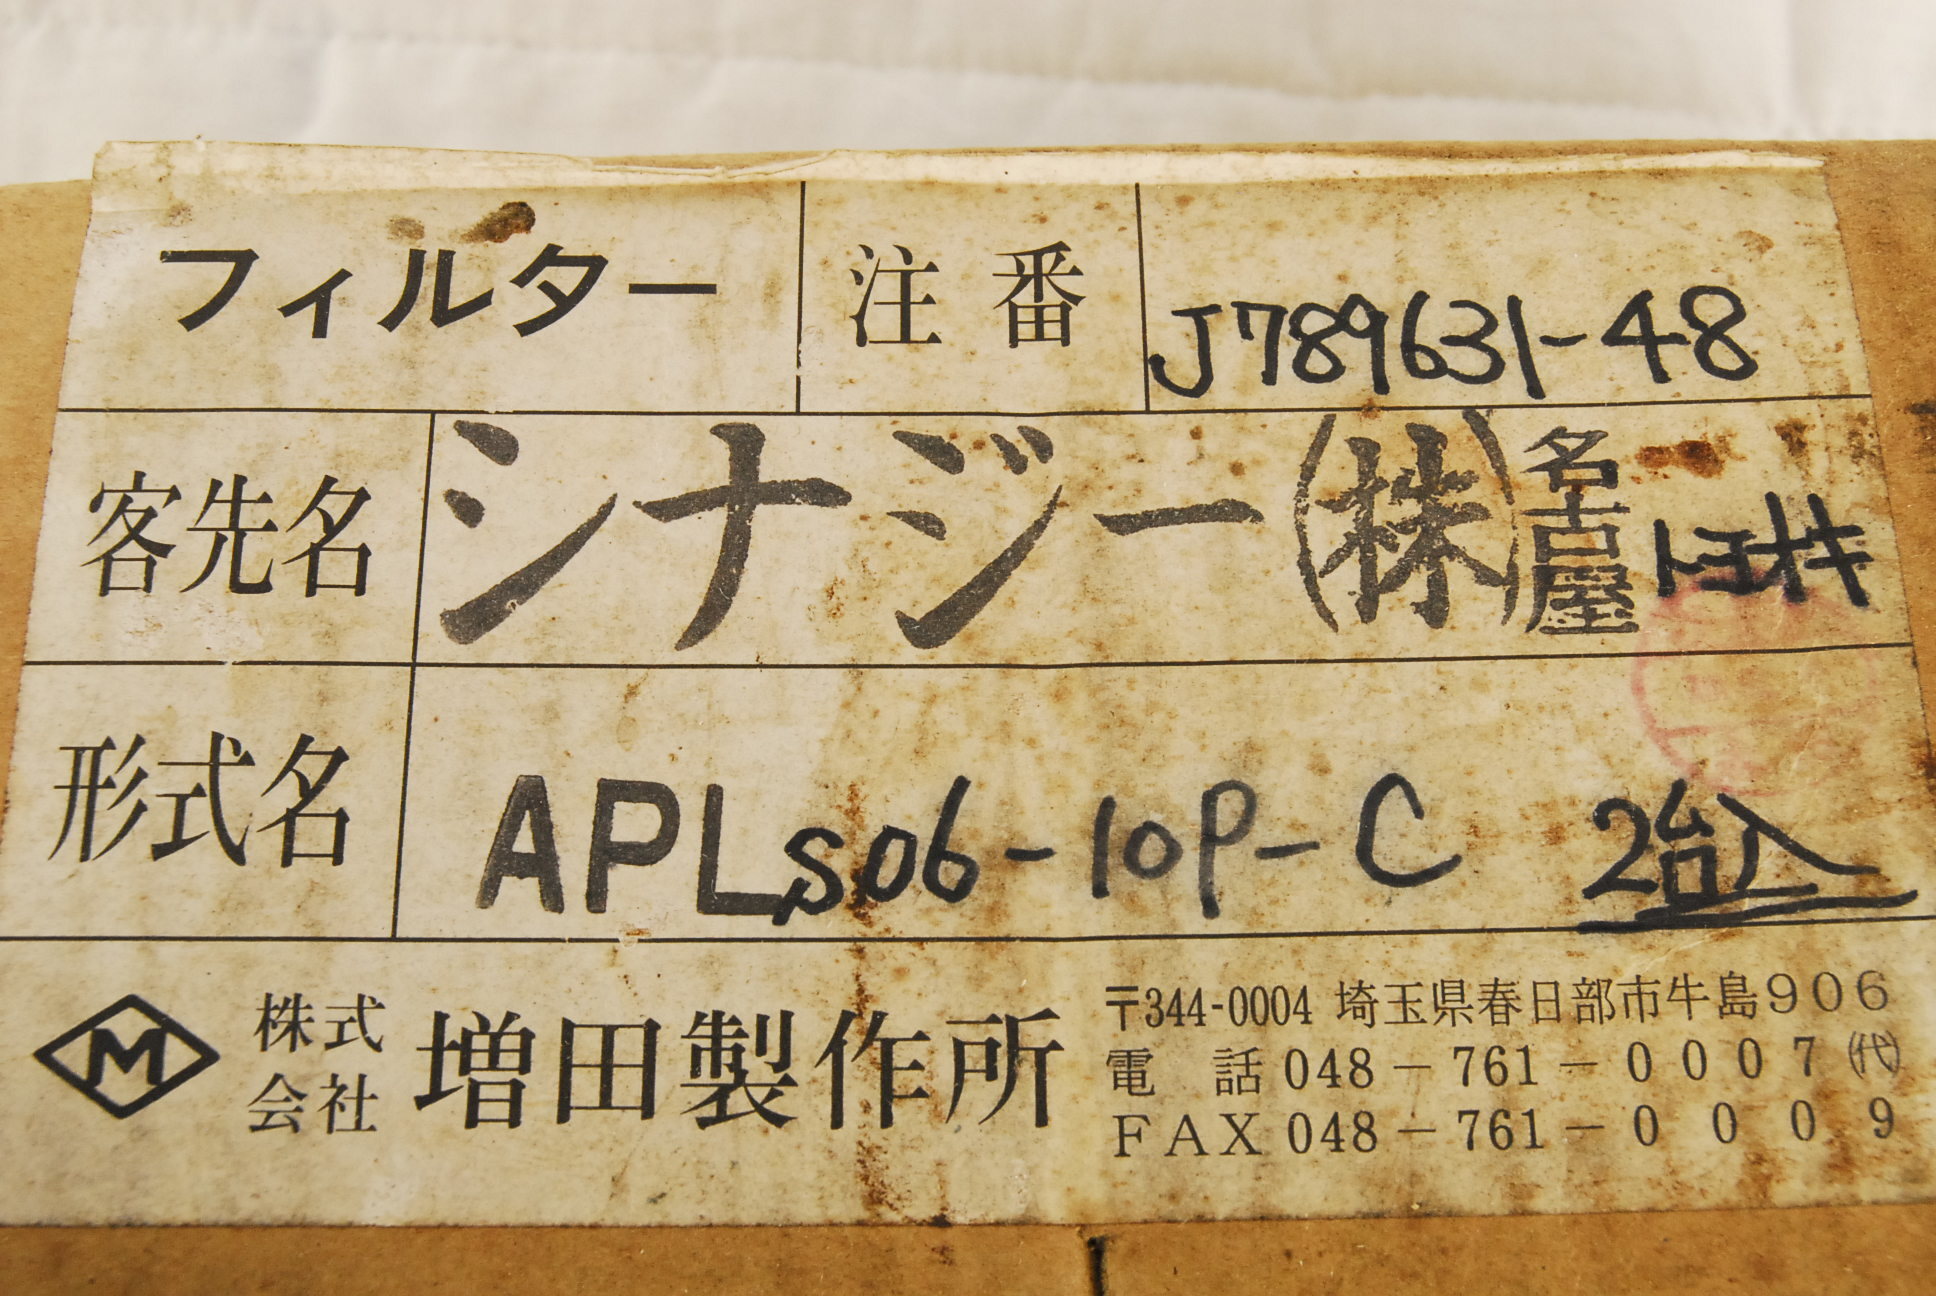 フィルター 注番 J789631-48
客先名 シナジー(株)名古屋 トヨオキ
形式名 APLS06-10P-C 2台入
M 株式会社 増田製作所
〒344-0004 埼玉県春日部市牛島906
電話 048-761-0007(代)
FAX 048-761-0009